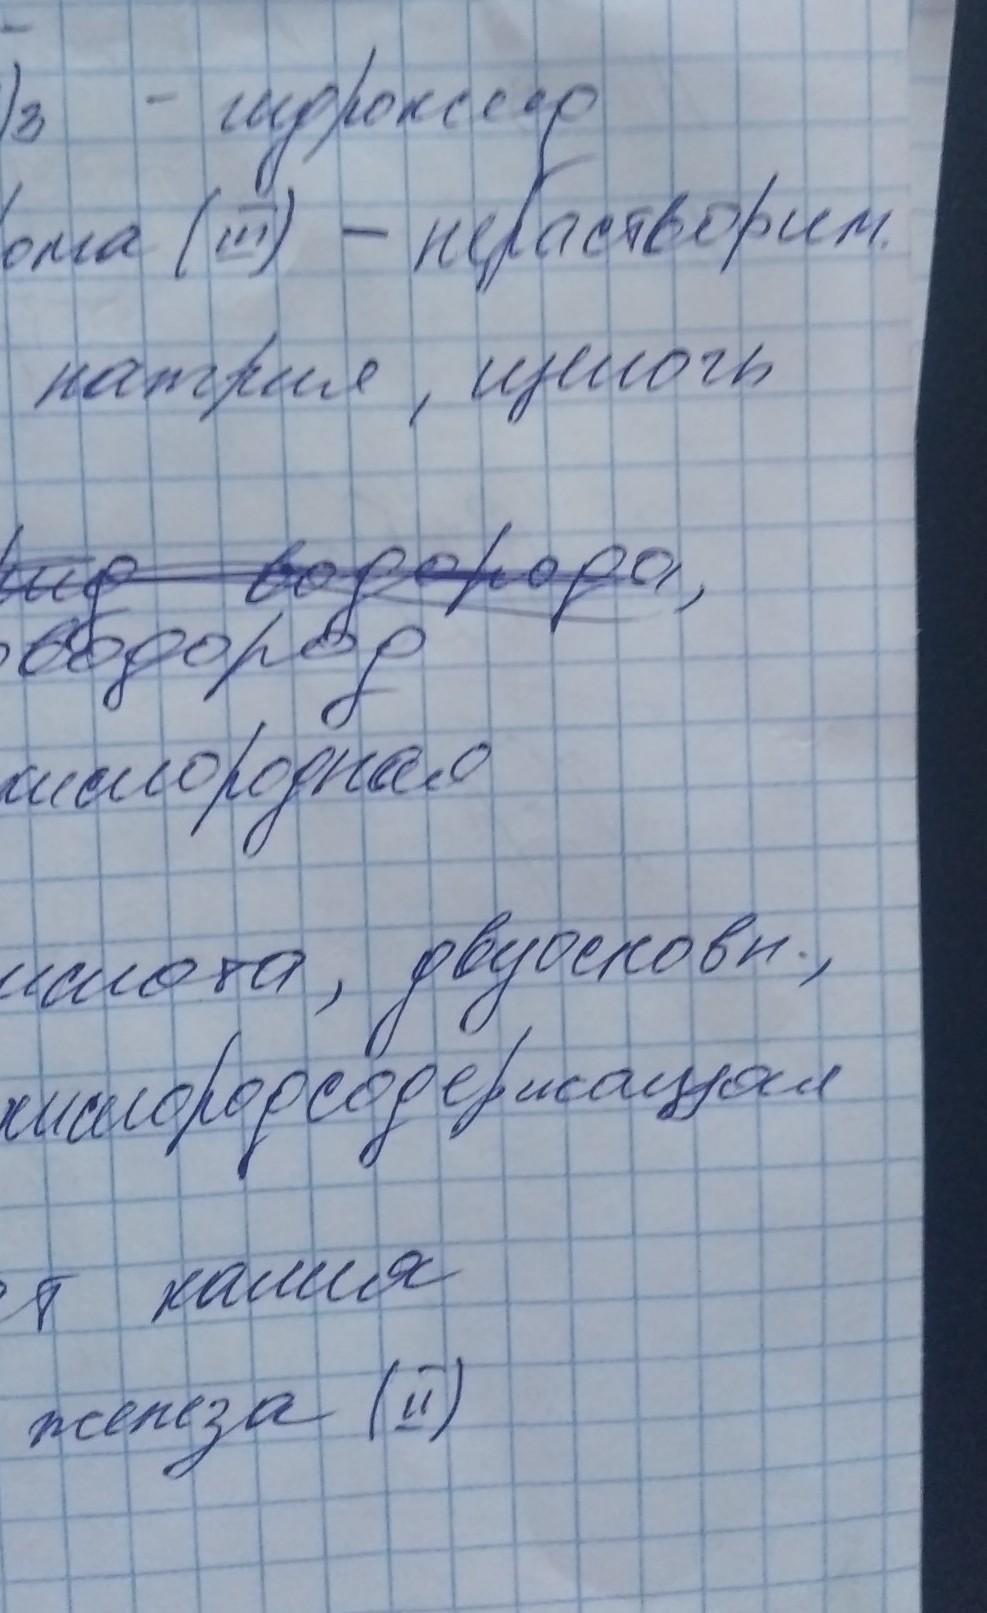 )3 - гидроксид
рома (III) - нерастворим.
натрия, щелочь
рид водорода,
оводород
кислородная
кислота, двуосновн.,
кислородсодержащая
ат калия
железа (II)